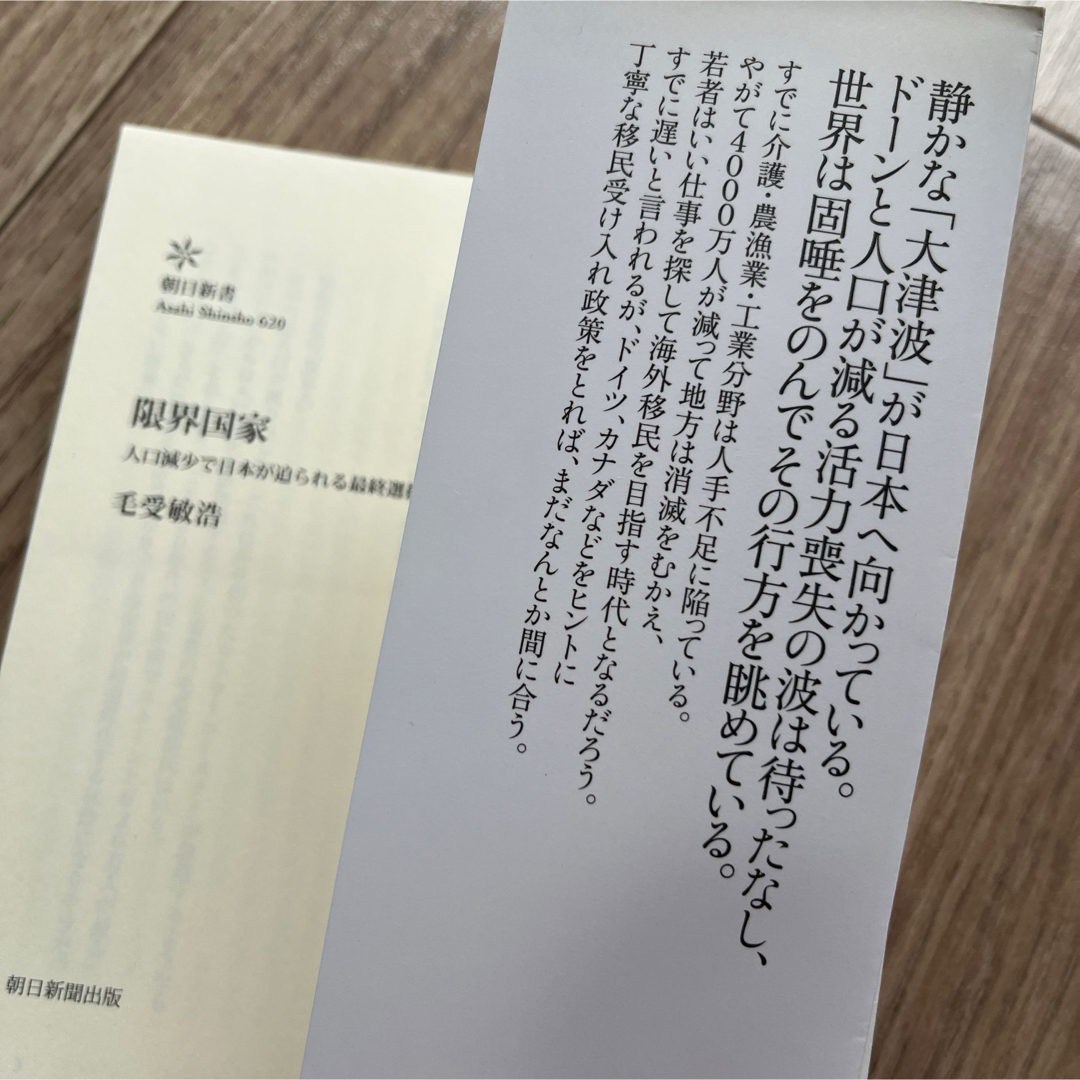 静かな「大津波」が日本へ向かっている。
ドーンと人口が減る活力喪失の波は待ったなし、
世界は固唾をのんでその行方を眺めている。
すでに介護・農漁業・工業分野は人手不足に陥っている。
やがて4000万人が減って地方は消滅をむかえ、
若者はいい仕事を探して海外移民を目指す時代となるだろう。
すでに遅いと言われるが、ドイツ、カナダなどをヒントに
丁寧な移民受け入れ政策をとれば、まだなんとか間に合う。
朝日新書
Asahi Shinsho 620
限界国家
人口減少で日本が迫られる最終選
毛受敏浩
朝日新聞出版